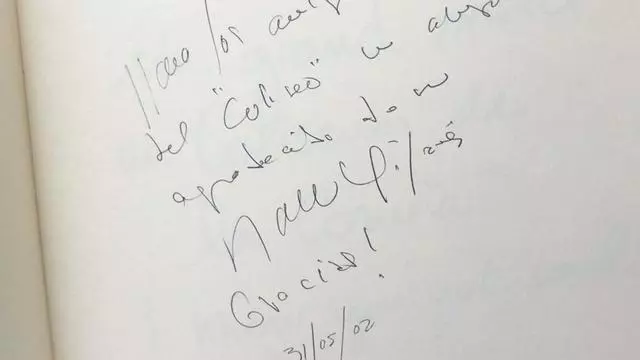 Para los amig
del "Coliseo" un abrazo
agradecido de
Gracias!
31/05/02